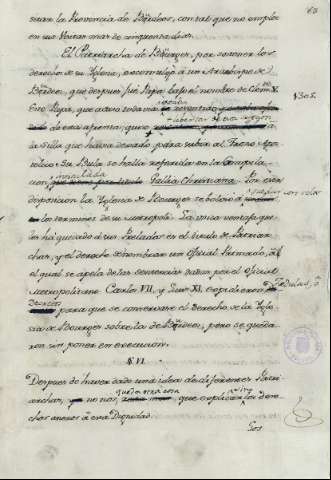 sitar la Provincia de Burdeos, con tal que no emplee
en sus Visitas mas de cinquenta dias.
El Patriarcha de Bourges, por sostener los
derechos de su Yglesia, excomulgó a un Arzobispo de
Burdeos, que despues fué Papa bajo el nombre de Clem. V.
Este Papa, que aun todavia
1305.
de esta afrenta, quiso
la Silla que havia dexado, para subir al Trono Apos-
tolico. Su Bula se halla referida en la Compila-
cion, intitulada Gallia Christiana. Por esta
disposicion la Yglesia de Bourges se bolvió a
los terminos de su Metropoli. La unica ventaja que
les ha quedado à sus Prelados es el titulo de Patriar-
chas, y el derecho de nombrar un Oficial Primado, à
el qual se apela de las sentencias dadas por el Oficial
Metropolitano. Carlos VII, y Luis XI, expidieron Cedulas, ó
Decretos para que se conservase el derecho de la Ygle-
sia de Bourges sobre la de Burdeos, pero se queda-
ron sin poner en execucion.
§ VI.
Despues de haver dado una idea de diferentes Patri-
archas, no nos queda mas que explicar los dere-
chos anexos à esta Dignidad.
Los